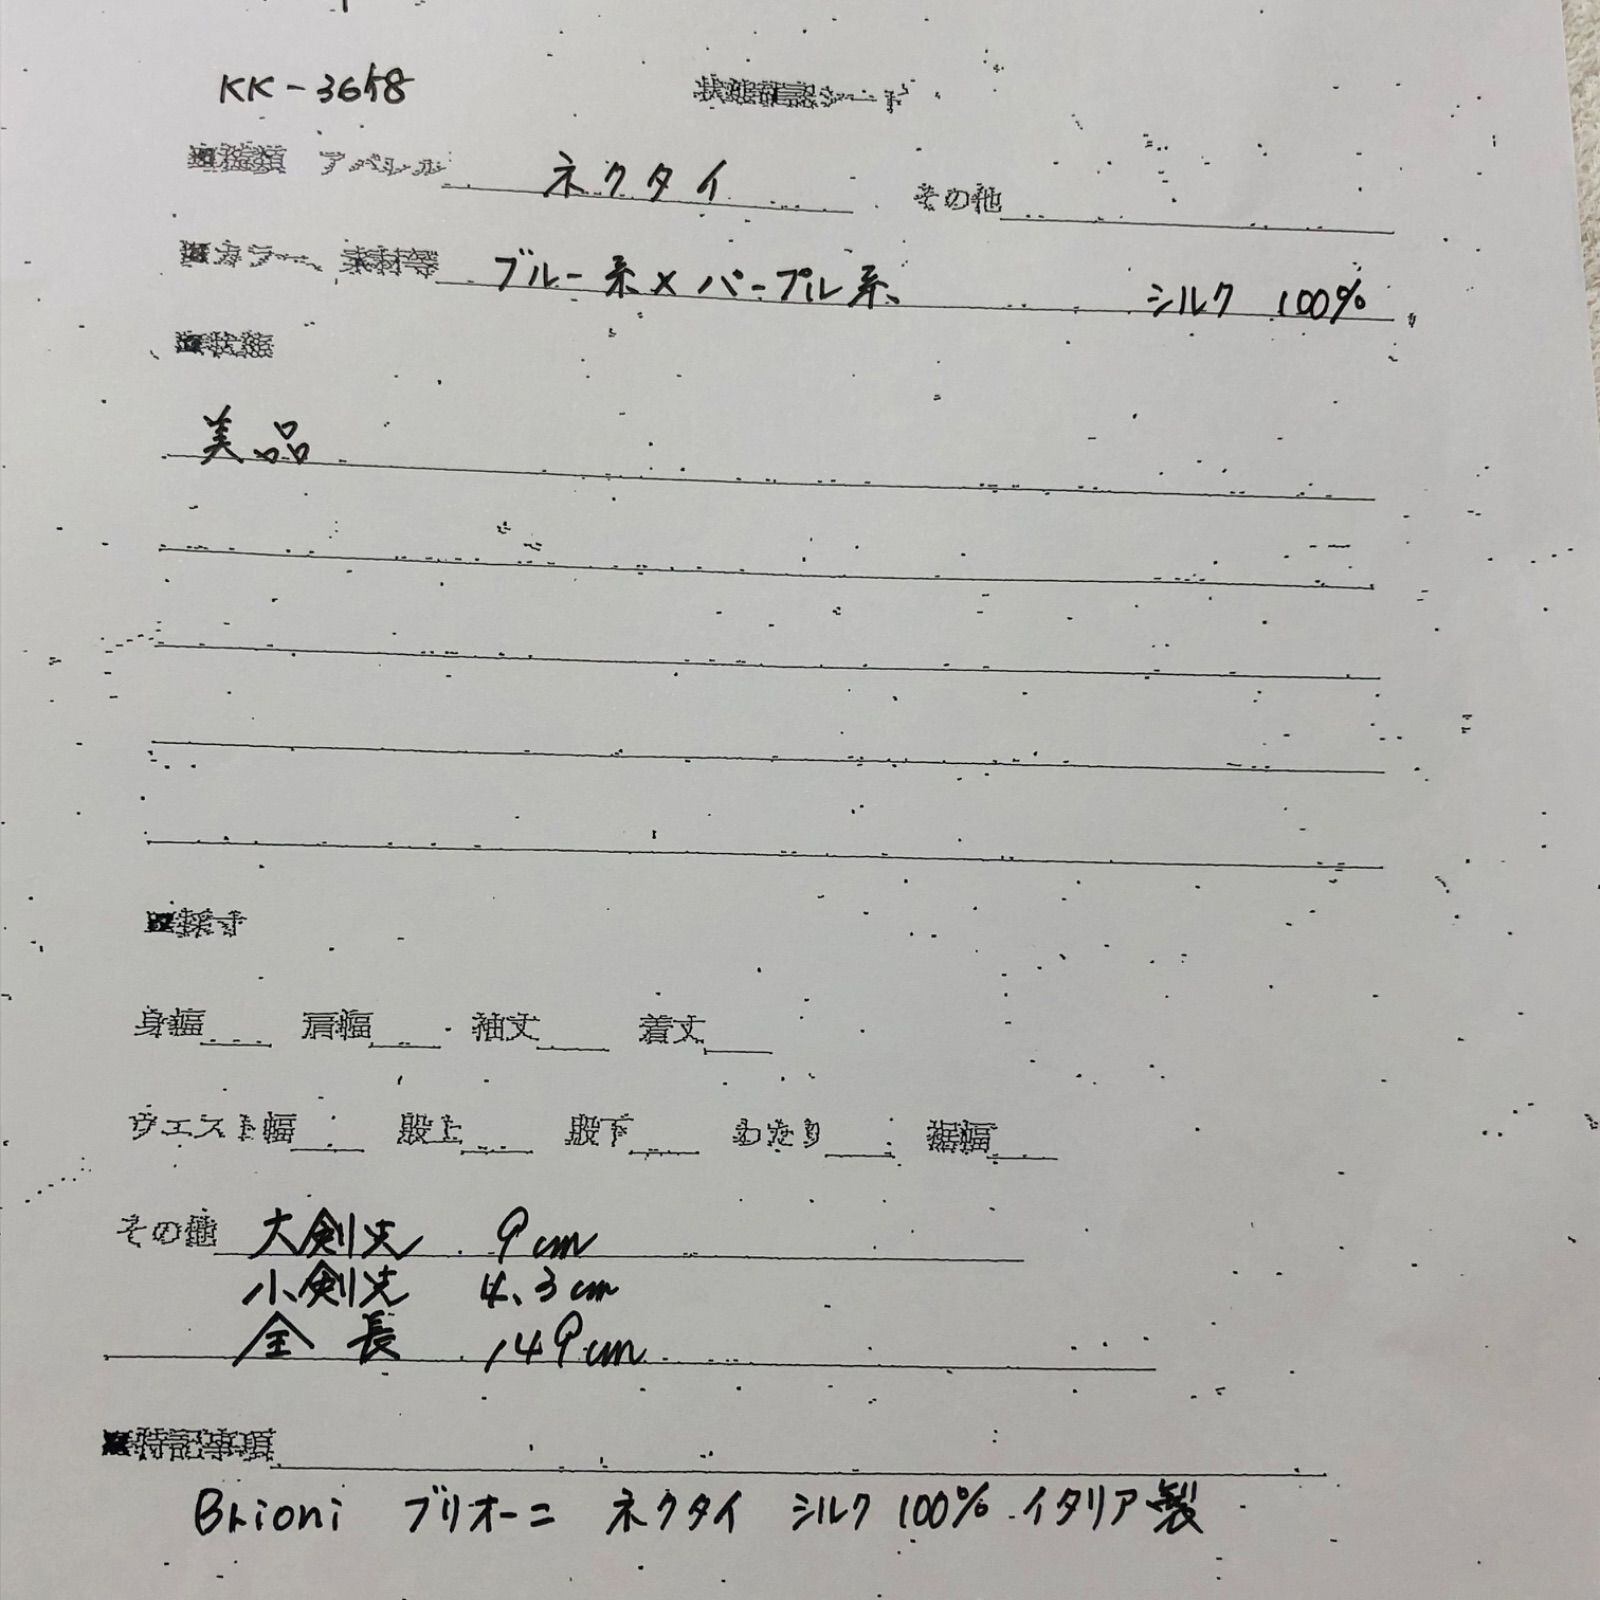 KK-3658 状態確認シート
■種類 アパレル ネクタイ その他
■カラー、素材等 ブルー系×パープル系、 シルク 100%
■状態
美品
■採寸
身幅 肩幅 袖丈 着丈
ウエスト幅 股上 股下 わたり 裾幅
その他 大剣先 9cm
小剣先 4.3cm
全長 149cm
■特記事項
Brioni ブリオーニ ネクタイ シルク 100% イタリア製